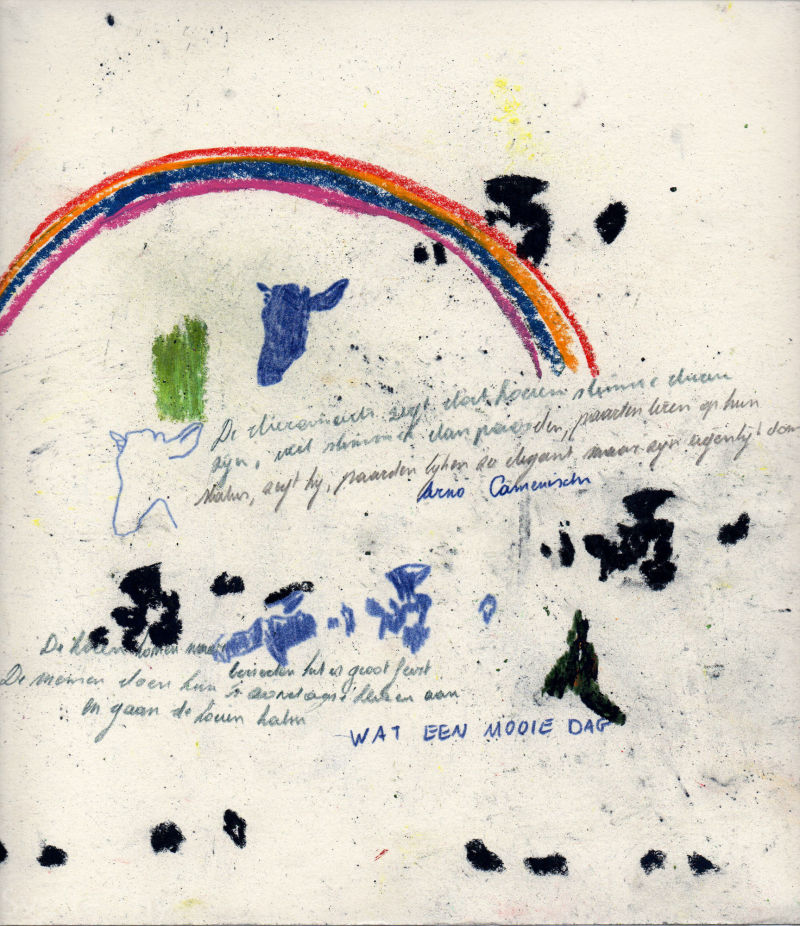 De dierenarts zegt dat koeien slimme dieren
zijn, veel slimmer dan paarden, paarden leren op hun
zegt hij, paarden lijken zo elegant, maar zijn eigenlijk dom
Arno Camenisch
De koeien komen naar
beneden het is groot feest
De mensen doen hun zondagse kleren aan
en gaan de koeien halen
WAT EEN MOOIE DAG